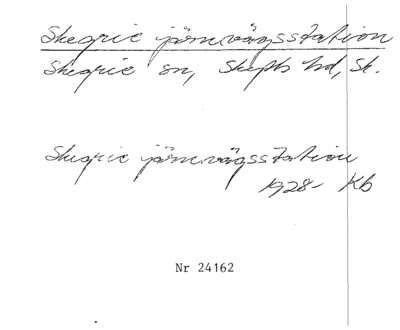 Skegrie järnvägsstation
Skegrie sn, Skytts hd, Sk.
Skegrie järnvägsstation
1928- Kb
Nr 24162